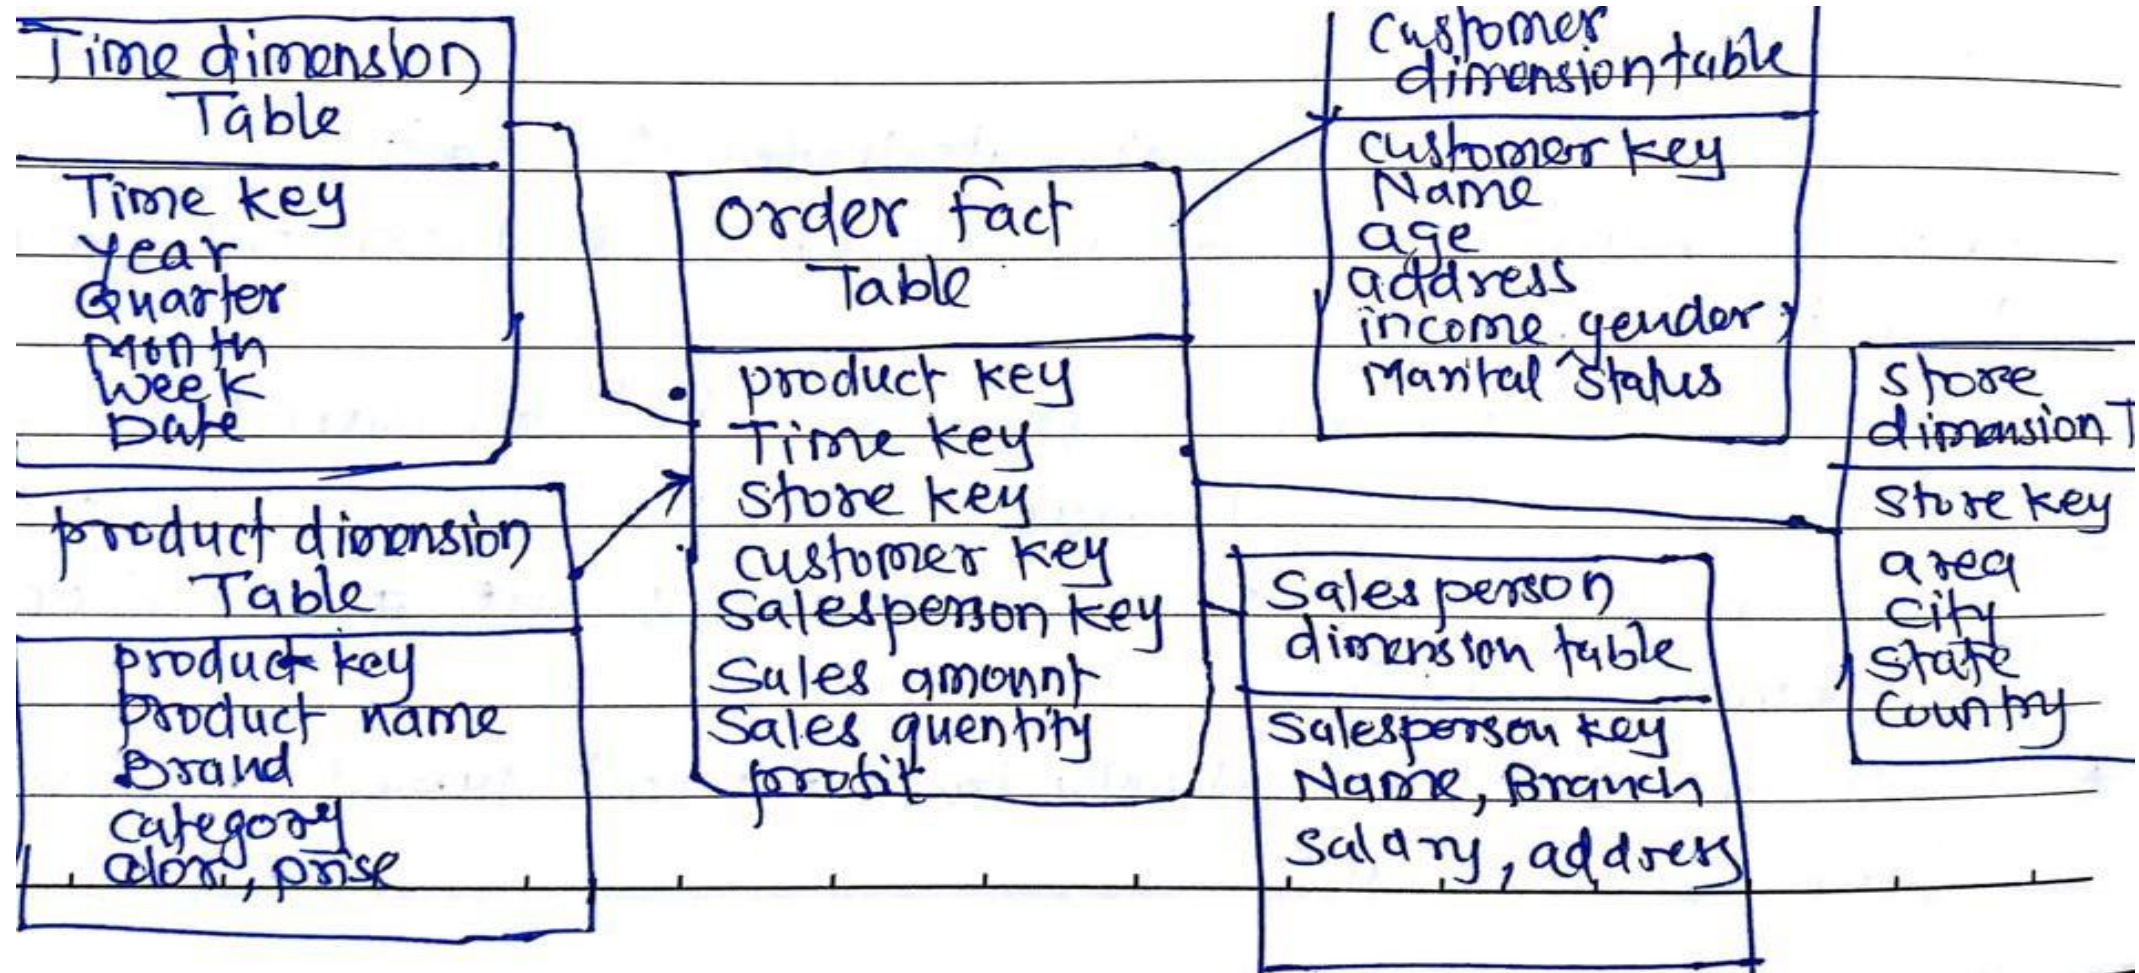 Time dimension
Table
Time key
Year
Quarter
Month
Week
Date
product dimension
Table
product key
product name
Brand
category
color, prise
order fact
Table
product key
Time key
store key
customer key
Salesperson key
Sales amount
Sales quentity
profit
customer
dimension table
customer key
Name
age
address
income gender,
Marital status
Sales person
dimension table
Salesperson key
Name, Branch
Salary, address
store
dimension T
store key
area
city
state
country